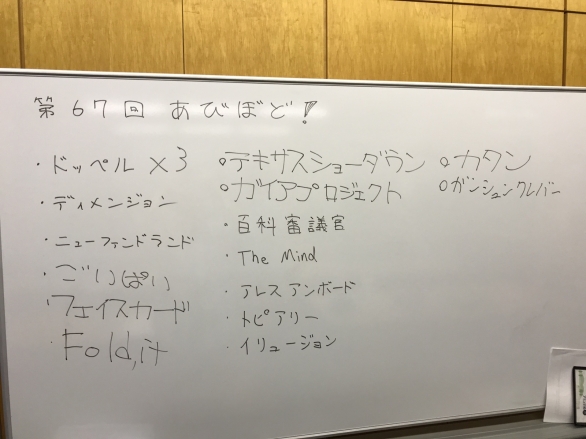 第67回 あびぼど!
・ドッペル ×3
・ディメンジョン
・ニューファンドランド
・ごいっぱい
・フェイスカード
・Fold,it
○テキサスショーダウン
○ガイアプロジェクト
・百科審議官
・The Mind
・アレスアンボード
・トピアリー
・イリュージョン
○カタン
○ガンシュンクレバー